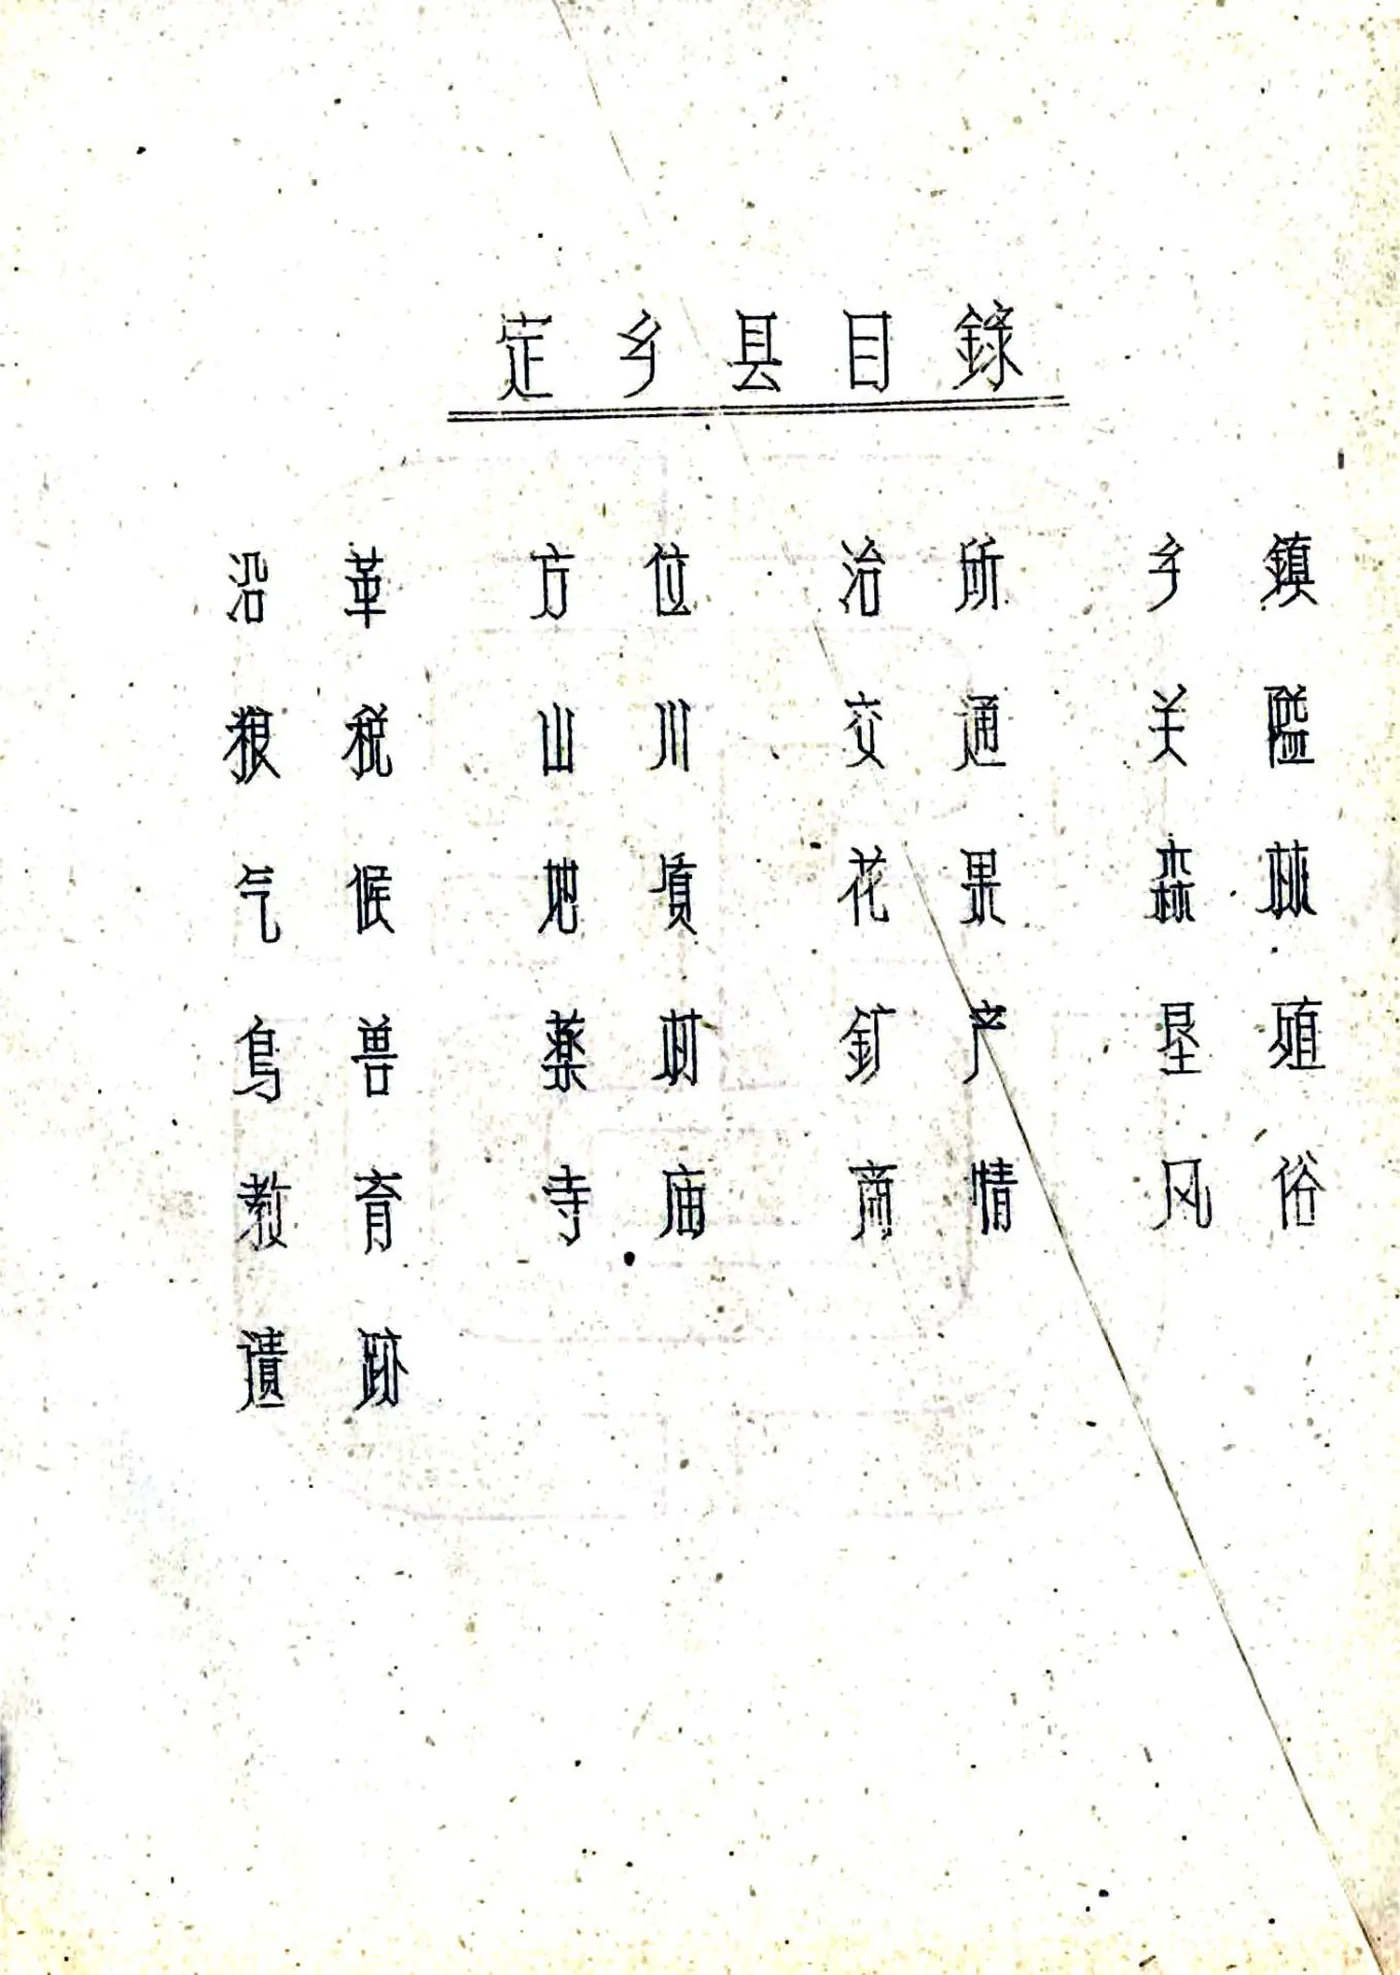 定乡县目錄
沿革 方位 治所 乡鎮
粮税 山川 交通 关隘
气候 地質 花果 森林
鸟兽 薬材 矿产 垦殖
教育 寺庙 商情 风俗
遗跡